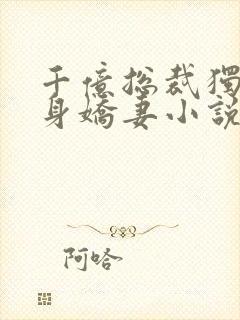 千億總裁獨
身嬌妻小說
阿哈